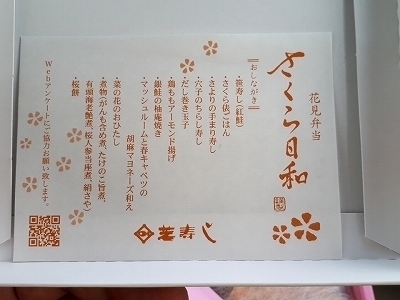 花見弁当
さくら日和
おしながき
・笹寿し(紅鮭)
・さくら俵ごはん
・さよりの手まり寿し
・穴子のちらし寿し
・だし巻き玉子
・鶏ももアーモンド揚げ
・銀鮭の柚庵焼き
・マッシュルームと春キャベツの
胡麻マヨネーズ和え
・菜の花のおひたし
・煮物(がんも含め煮、たけのこ旨煮、
有頭海老艶煮、桜人参当座煮、絹さや)
・桜餅
Webアンケートにご協力お願い致します。
芝寿し